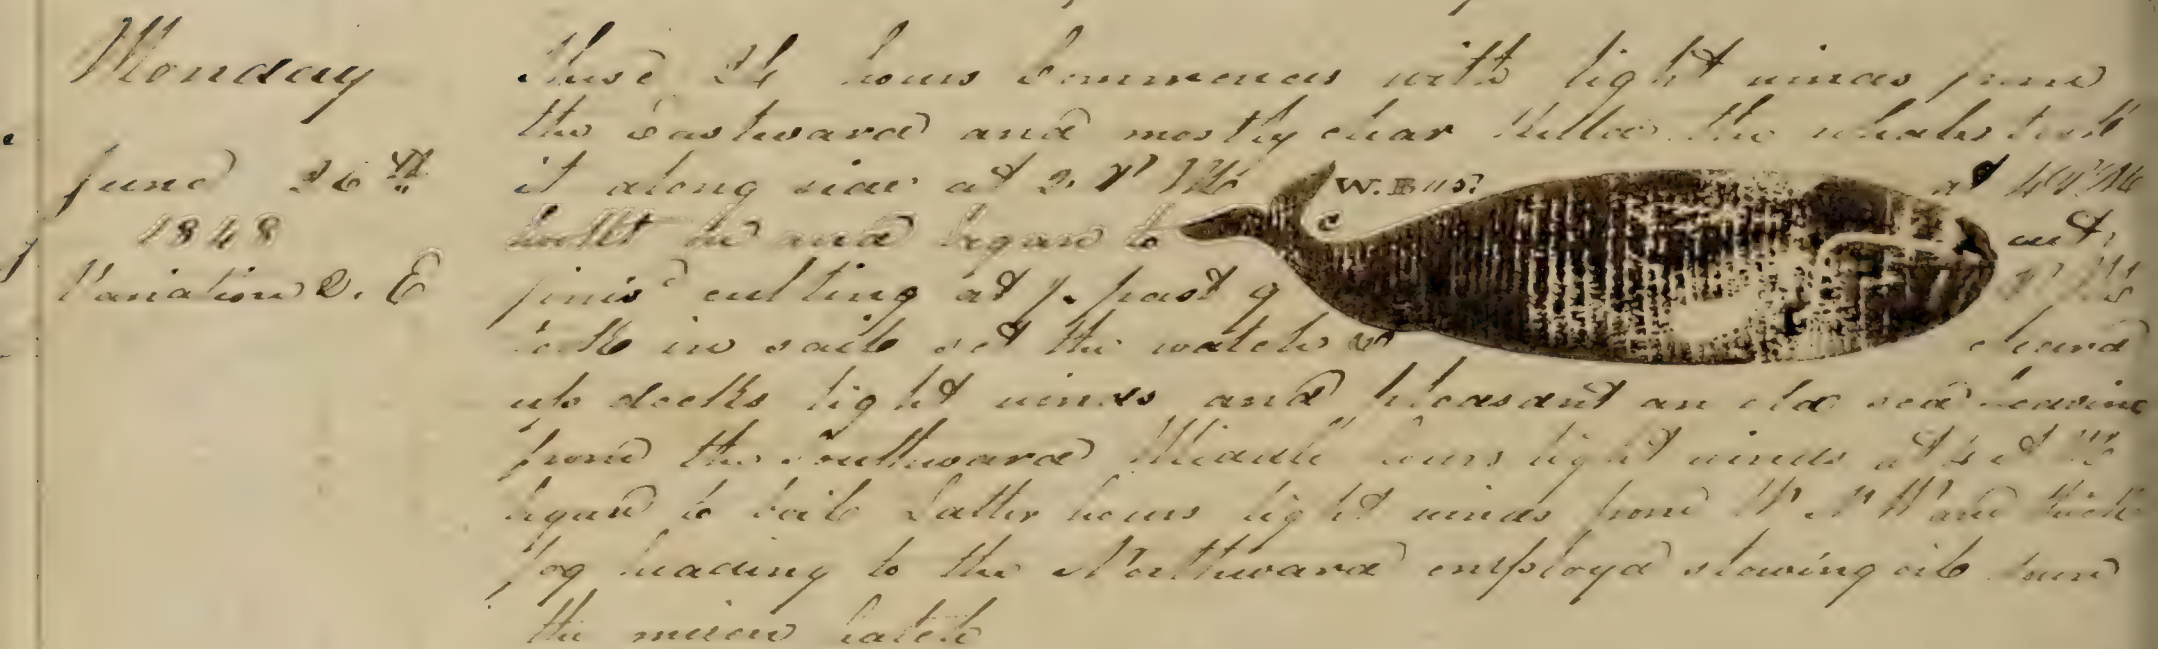 Monday
June 26th
1848
Variation 2. E
these 24 hours Commences with light winds from
the Eastward and mostly clear Killed the whale took
it along side at 2 P M at 4 P M
W. B
hookt on and began to cut
finisd cutting at past 9 P M
took in sail set the watch
up decks light winds and pleasant an old sea heaving
from the Southward Middle hours light winds at 4 A M
began to boil Latter hours light winds from W N W and thick
fog heading to the Northward employd stowing oil
the mizen hatch